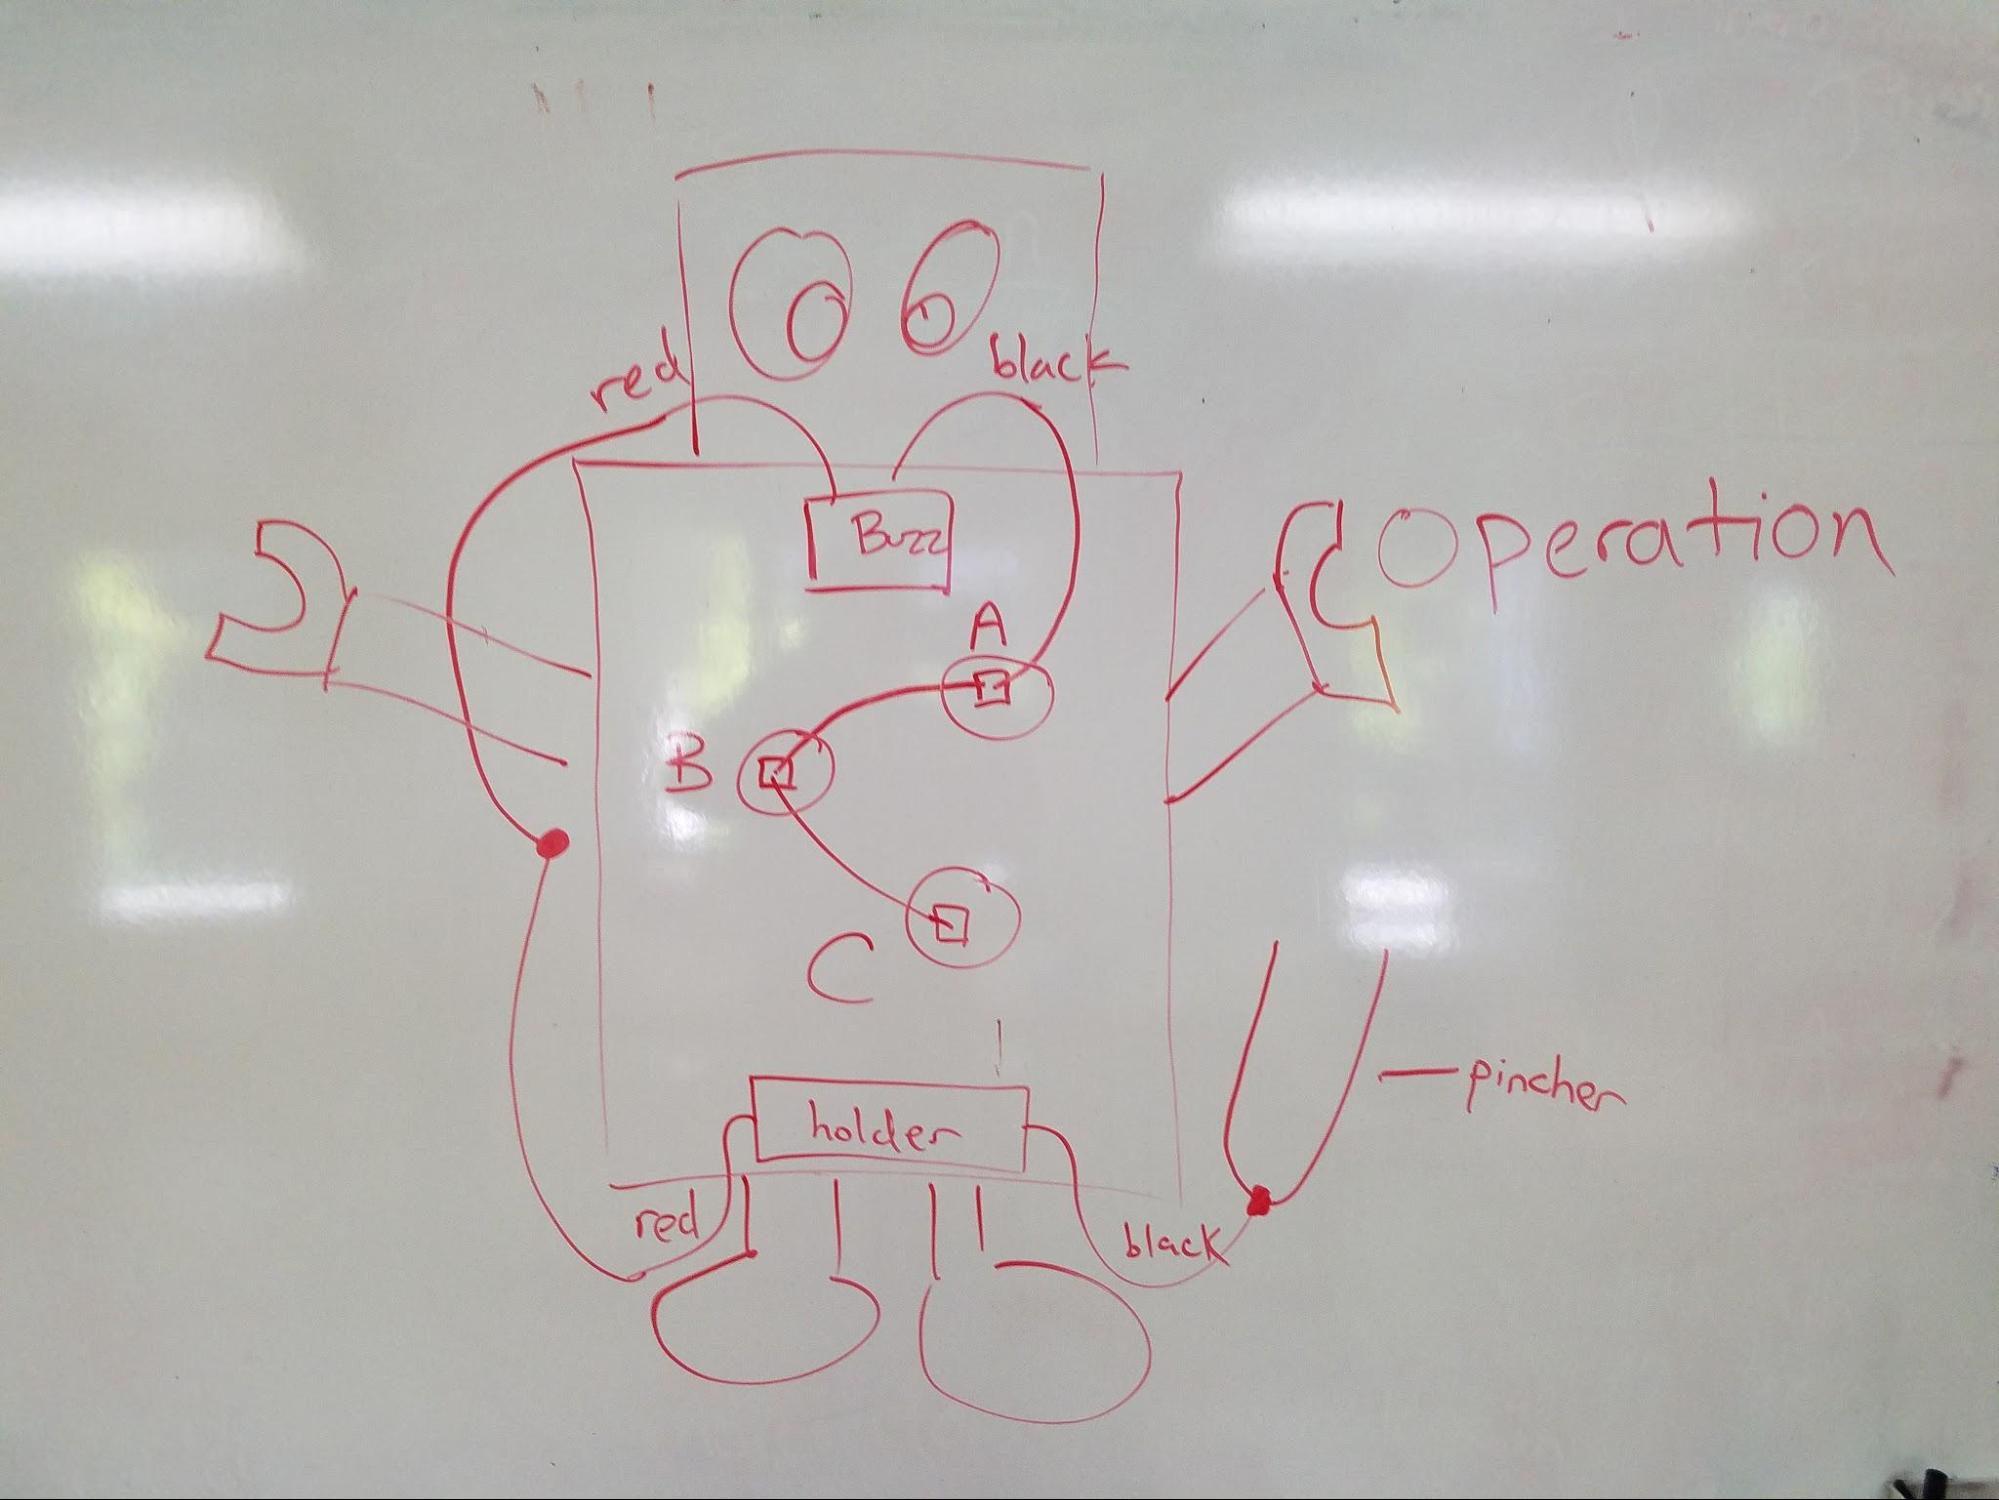 red
black
Buzz
Operation
A
B
C
pincher
holder
red
black